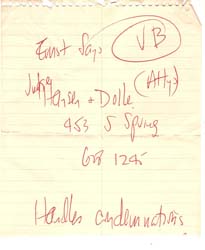 Ernst Says VB
Judge
Hansen & Dolle (Attys)
453 S Spring
1245
Handles condemnations